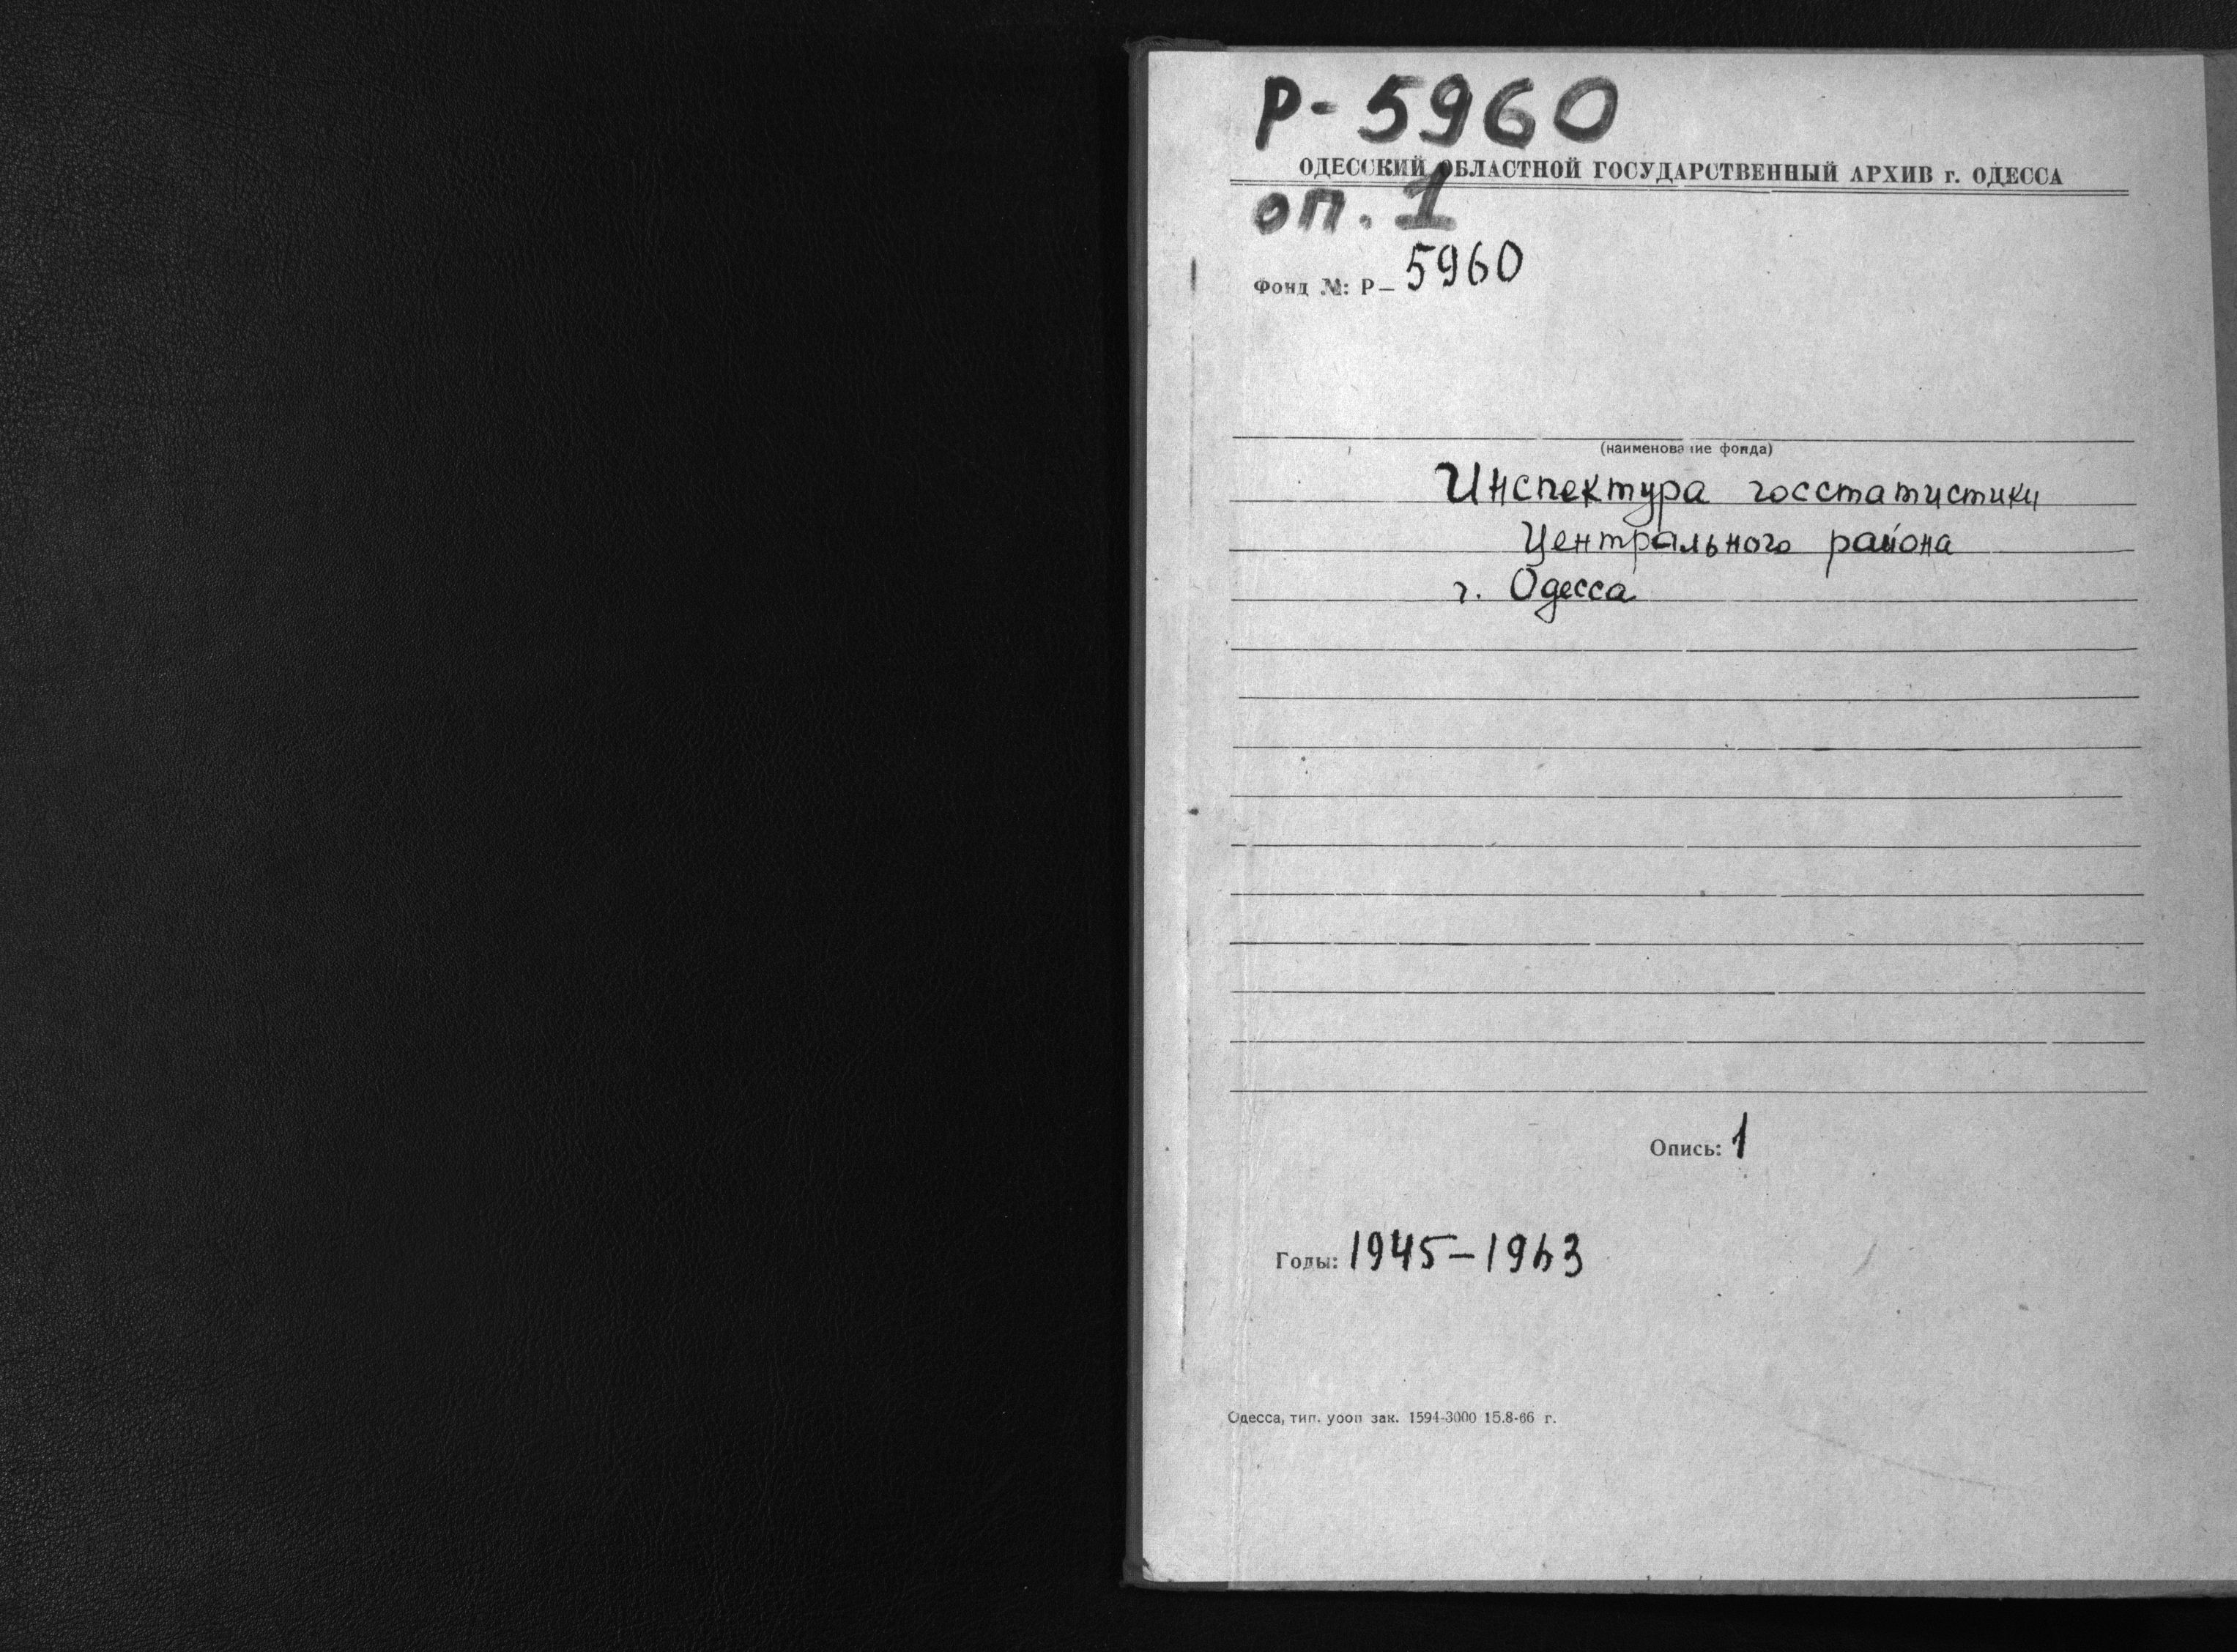 Р-5960
ОДЕССКИЙ ОБЛАСТНОЙ ГОСУДАРСТВЕННЫЙ АРХИВ г. ОДЕССА
оп. 1
Фонд №: Р— 5960
(наименование фонда)
Инспектура госстатистики
Центрального района
г. Одесса
Опись: 1
Годы: 1945–1963
Одесса, тип. уооп зак. 1594-3000 15.8-66 г.